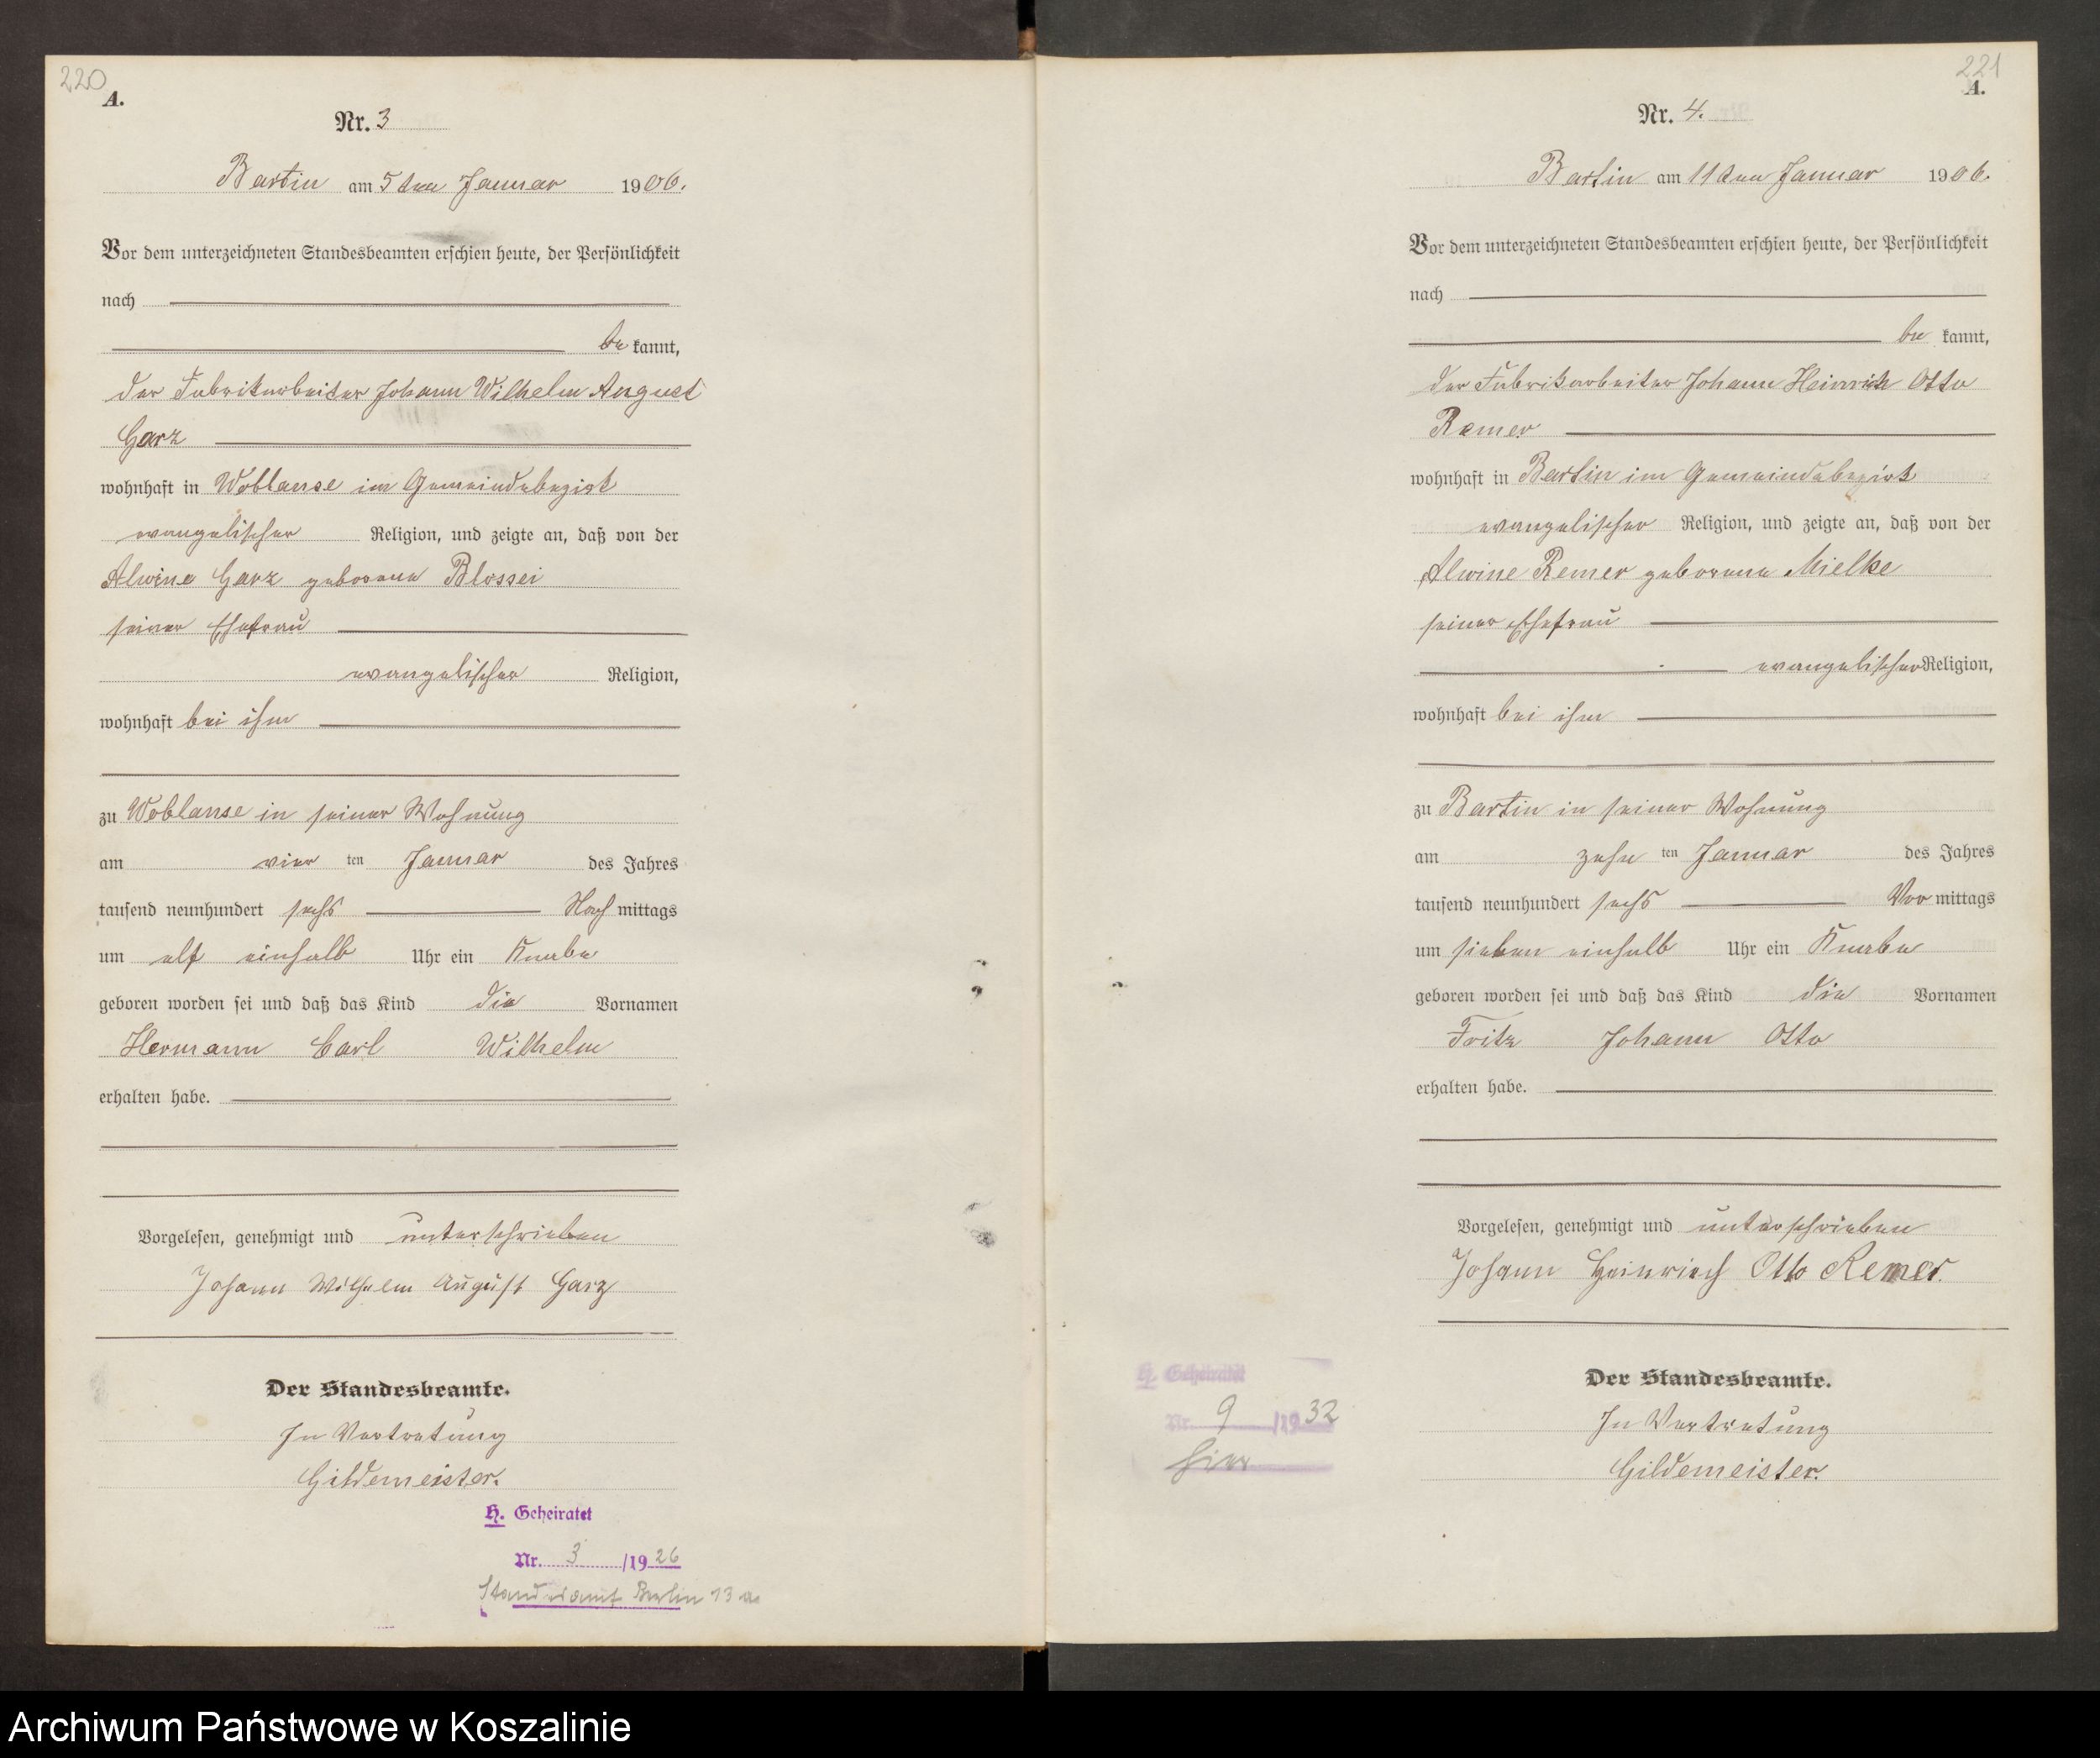 220
A.
Nr. 3
Bartin am 5ten Januar 1906.
Vor dem unterzeichneten Standesbeamten erschien heute, der Persönlichkeit
nach
be kannt,
der Fabrikarbeiter Johann Wilhelm August
Garz
wohnhaft in Woblanse im Gemeindebezirk
evangelischer Religion, und zeigte an, daß von der
Alwine Garz geborene Blossei
seiner Ehefrau
evangelischer Religion,
wohnhaft bei ihm
zu Woblanse in seiner Wohnung
am vier ten Januar des Jahres
tausend neunhundert sechs Nach mittags
um elf einhalb Uhr ein Knabe
geboren worden sei und daß das Kind die Vornamen
Hermann Carl Wilhelm
erhalten habe.
Vorgelesen, genehmigt und unterschrieben
Johann Wilhelm August Garz
Der Standesbeamte.
In Vertretung
Gildemeister.
H. Geheiratet
Nr. 3 /1926
Standesamt Berlin 13 a
221
A.
Nr. 4.
Bartin am 11ten Januar 1906.
Vor dem unterzeichneten Standesbeamten erschien heute, der Persönlichkeit
nach
be kannt,
der Fabrikarbeiter Johann Heinrich Otto
Remer
wohnhaft in Bartin im Gemeindebezirk
evangelischer Religion, und zeigte an, daß von der
Alwine Remer geborene Mielke
seiner Ehefrau
evangelischer Religion,
wohnhaft bei ihm
zu Bartin in seiner Wohnung
am zehn ten Januar des Jahres
tausend neunhundert sechs Vor mittags
um sieben einhalb Uhr ein Knabe
geboren worden sei und daß das Kind die Vornamen
Fritz Johann Otto
erhalten habe.
Vorgelesen, genehmigt und unterschrieben
Johann Heinrich Otto Remer.
Der Standesbeamte.
In Vertretung
Gildemeister.
H. Geheiratet
Nr. 9 /1932
hier
Archiwum Państwowe w Koszalinie